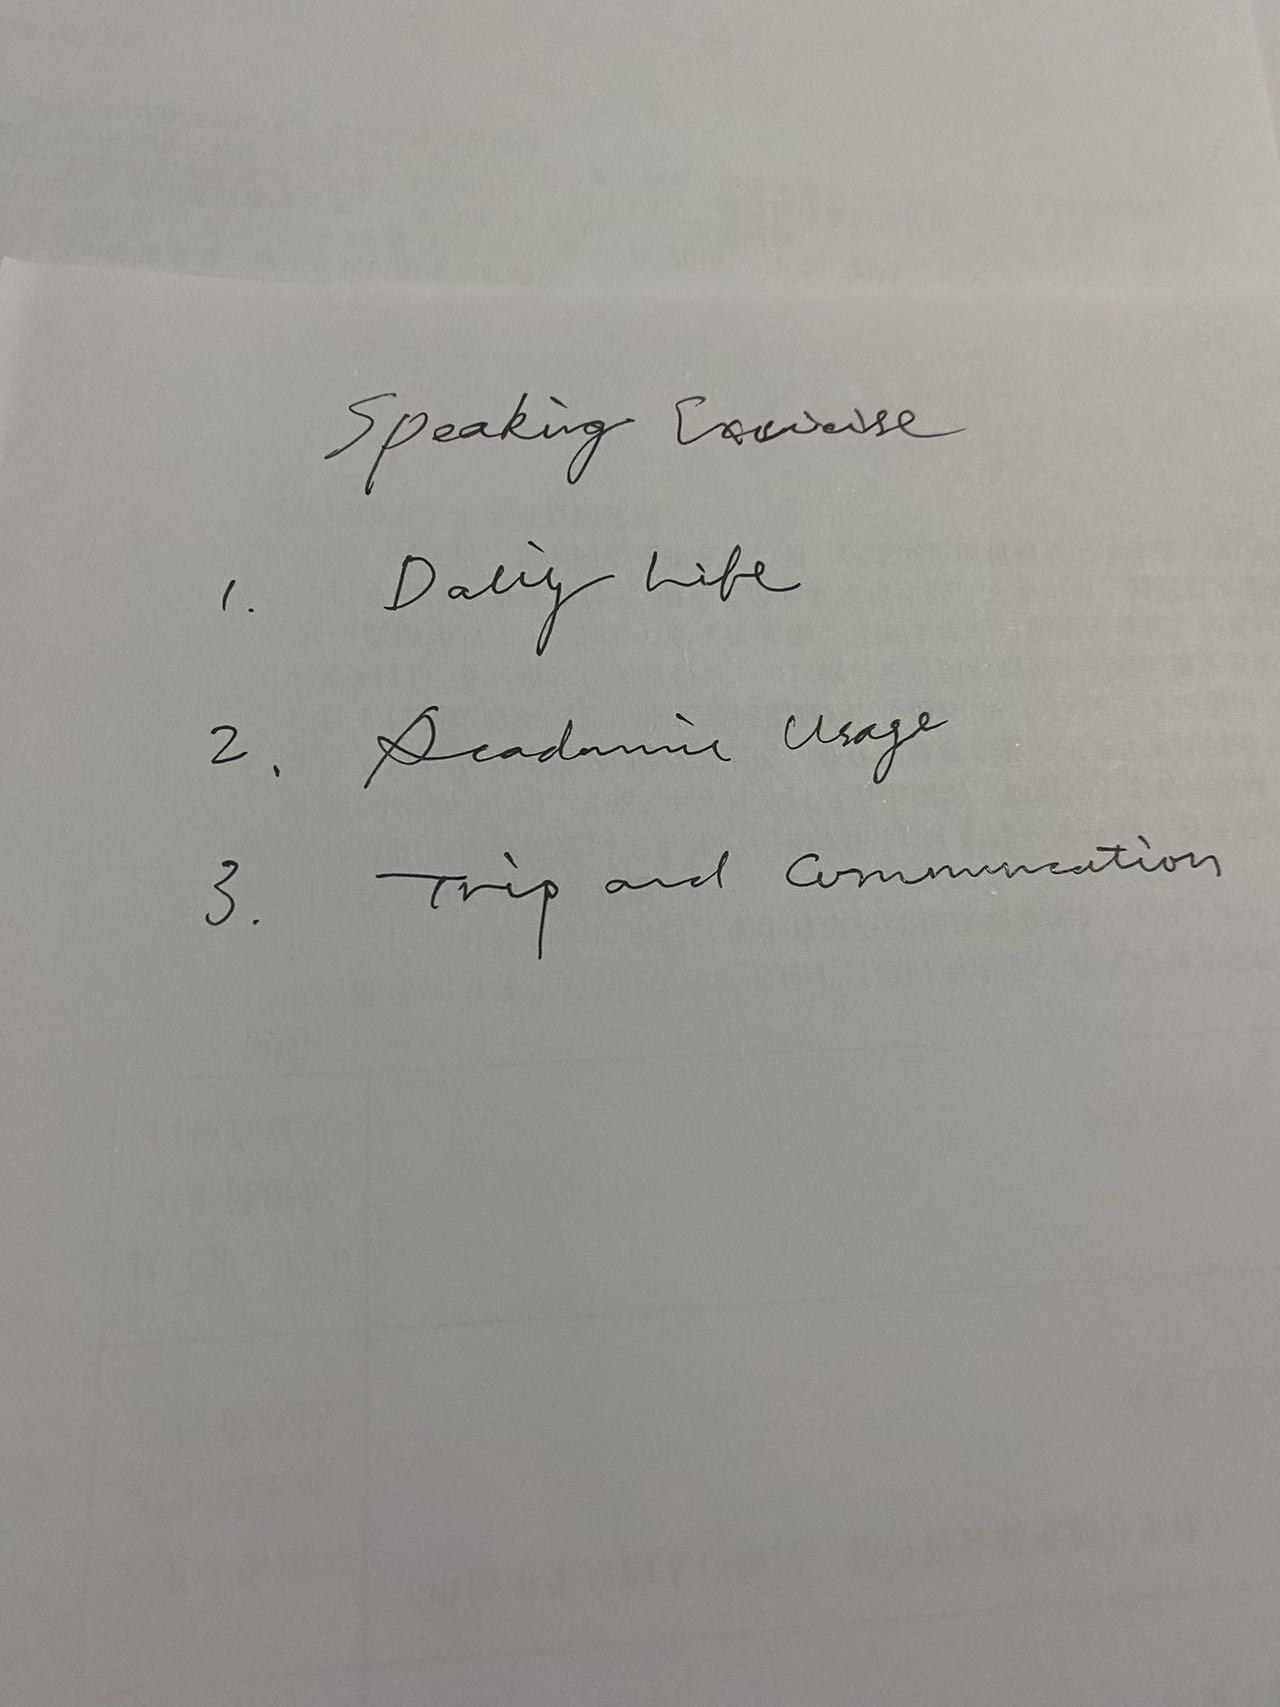 Speaking Exercise
1. Daily Life
2. Academic Usage
3. Trip and Communication